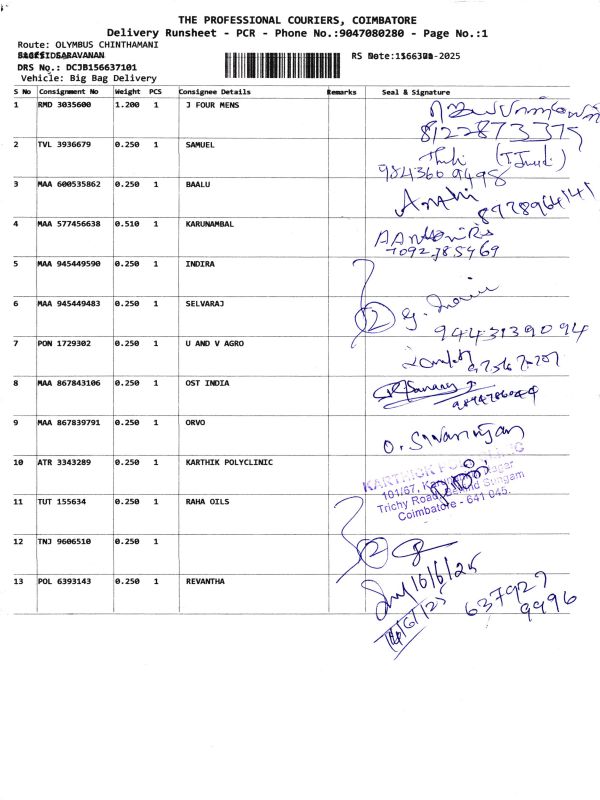 THE PROFESSIONAL COURIERS, COIMBATORE
Delivery Runsheet - PCR - Phone No.:9047080280 - Page No.:1
Route: OLYMBUS CHINTHAMANI
SARAVANAN
RS Date: -2025
DRS No.: DCJB156637101
Vehicle: Big Bag Delivery
S No Consignment No Weight PCS Consignee Details Remarks Seal & Signature
1 RMD 3035600 1.200 1 J FOUR MENS
8122873375
2 TVL 3936679 0.250 1 SAMUEL
9843609498
3 MAA 600535862 0.250 1 BAALU
8978964141
4 MAA 577456638 0.510 1 KARUNAMBAL
7092785469
5 MAA 945449590 0.250 1 INDIRA
6 MAA 945449483 0.250 1 SELVARAJ
2
9443139094
7 PON 1729302 0.250 1 U AND V AGRO
8 MAA 867843106 0.250 1 OST INDIA
9 MAA 867839791 0.250 1 ORVO
10 ATR 3343289 0.250 1 KARTHIK POLYCLINIC
KARTHICK POLYCLINIC
101/67,
Trichy Road, Behind Sungam
Coimbatore - 641 045.
11 TUT 155634 0.250 1 RAHA OILS
12 TNJ 9606510 0.250 1
2
13 POL 6393143 0.250 1 REVANTHA
16/6/25
637927
9996
16/6/25